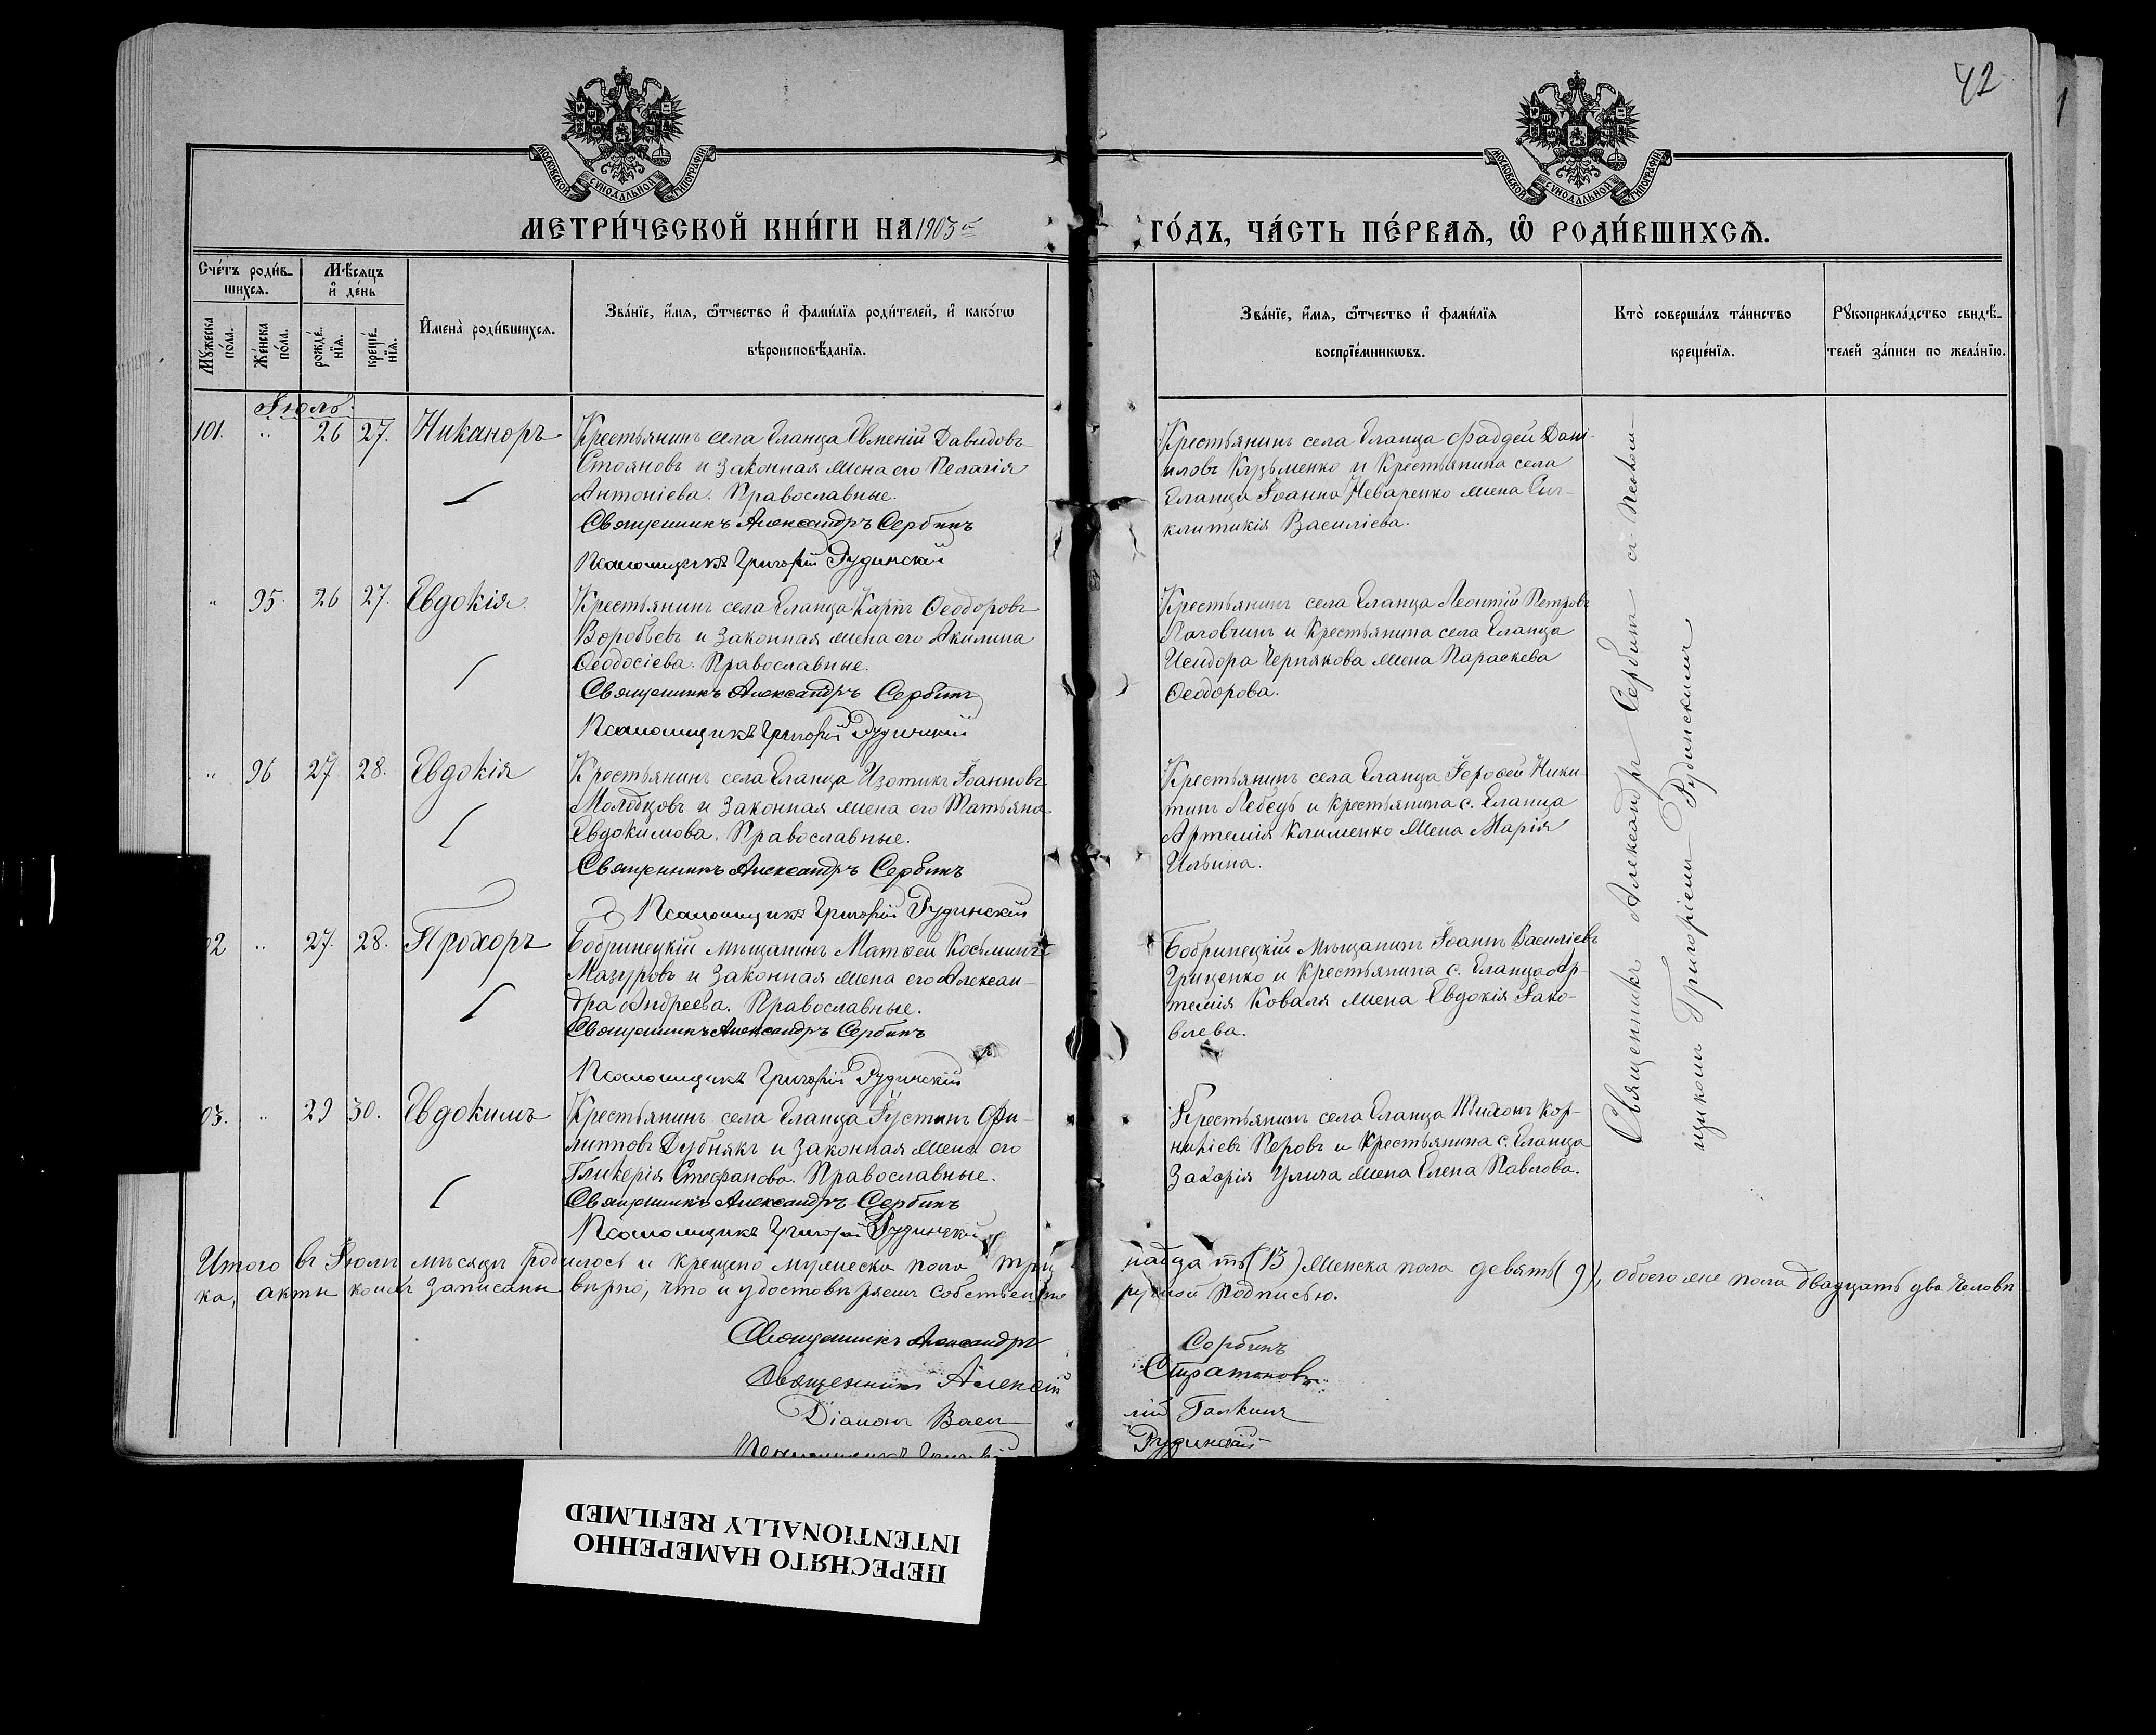 42
МОСКОВСКОЙ СѴНОДАЛЬНОЙ ТИПОГРАФІИ
МОСКОВСКОЙ СѴНОДАЛЬНОЙ ТИПОГРАФІИ
МЕТРИ́ЧЕСКОЙ КНИ́ГИ НА 1903й
ГО́ДЪ, ЧА́СТЬ ПЕ́РВАЯ, Ѡ҆ РОДИ́ВШИХСЯ.
Сче́тъ роди́в-
шихся.
Мѣ́сяцъ
и҆ де́нь
Му́жеска по́ла.
Же́нска по́ла.
рожде́-нїѧ.
креще́-нїѧ.
И҆мена̀ роди́вшихся.
Зва́нїе, и҆́мѧ, ѻ҆́тчество и҆ фами́лїѧ роди́телей, и҆ како́гѡ
вѣроисповѣ́данїѧ.
Зва́нїе, и҆́мѧ, ѻ҆́тчество и҆ фами́лїѧ
воспрїе́мникѡвъ.
Кто̀ соверша́лъ та́инство
креще́нїѧ.
Рꙋкоприкла́дство свидѣ́-
телей за́писи по жела́нїю.
Іюль
101. " 26 27. Никаноръ
Крестьянинъ села Еланца Евменій Давидовъ
Стояновъ и законная жена его Пелагія
Антоніева. Православные.
Священникъ Александръ Сербинъ
Псаломщикъ Григорій Рудинскій
Крестьянинъ села Еланца Фаддей Дані-
иловъ Кузьменко и Крестьянина села
Еланца Іоанна Неваренко жена Син-
клитикія Василіева.
" 95. 26 27. Евдокія.
Крестьянинъ села Еланца Карпъ Ѳеодоровъ
Воробьевъ и законная жена его Акилина
Ѳеодосіева. Православные.
Священникъ Александръ Сербинъ
Псаломщикъ Григорій Рудинскій
Крестьянинъ села Еланца Леонтій Петровъ
Паговчинъ и Крестьянина села Еланца
Исидора Чернякова жена Параскева
Ѳеодорова.
" 96 27 28. Евдокія
Крестьянинъ села Еланца Изотикъ Іоанновъ
Молодцовъ и законная жена его Татьяна
Евдокимова. Православные.
Священникъ Александръ Сербинъ
Псаломщикъ Григорій Рудинскій
Крестьянинъ села Еланца Іероѳей Ники-
тинъ Лебедь и крестьянина с. Еланца
Артемія Клименко жена Марія
Ильина.
02 " 27. 28. Прохоръ
Бобринецкій мѣщанинъ Матѳей Косьминъ
Мазуровъ и законная жена его Алексан-
дра Андреева. Православные.
Священникъ Александръ Сербинъ
Псаломщикъ Григорій Рудинскій
Бобринецкій мѣщанинъ Іоаннъ Василіевъ
Гриценко и Крестьянина с. Еланца Ар-
темія Коваля жена Евдокія Іако-
влева.
03. " 29 30. Евдокимъ
Крестьянинъ села Еланца Іустинъ Фи-
липповъ Дубнякъ и законная жена его
Гликерія Стефанова. Православные.
Священникъ Александръ Сербинъ
Псаломщикъ Григорій Рудинскій
Крестьянинъ села Еланца Тихонъ Кор-
ниліевъ Перовъ и Крестьянина с. Еланца
Захарія Гулича жена Елена Павлова.
Священникъ Александръ Сербинъ съ псалом-
щикомъ Григоріемъ Рудинскимъ
Итого въ Іюлѣ мѣсяцѣ родилось и крещено мужеска пола три
надцать (13) женска пола девять (9), обоего же пола двадцать два человѣ-
ка, акты коихъ записаны вѣрно, что и удостовѣряемъ собственно
ручной подписью.
Священникъ Александръ Сербинъ
Священникъ Алексій Стратоновъ
Діаконъ Васи лій Галкинъ
Псаломщикъ Григорій Рудинскій
ПЕРЕСНЯТО НАМЕРЕННО
INTENTIONALLY REFILMED